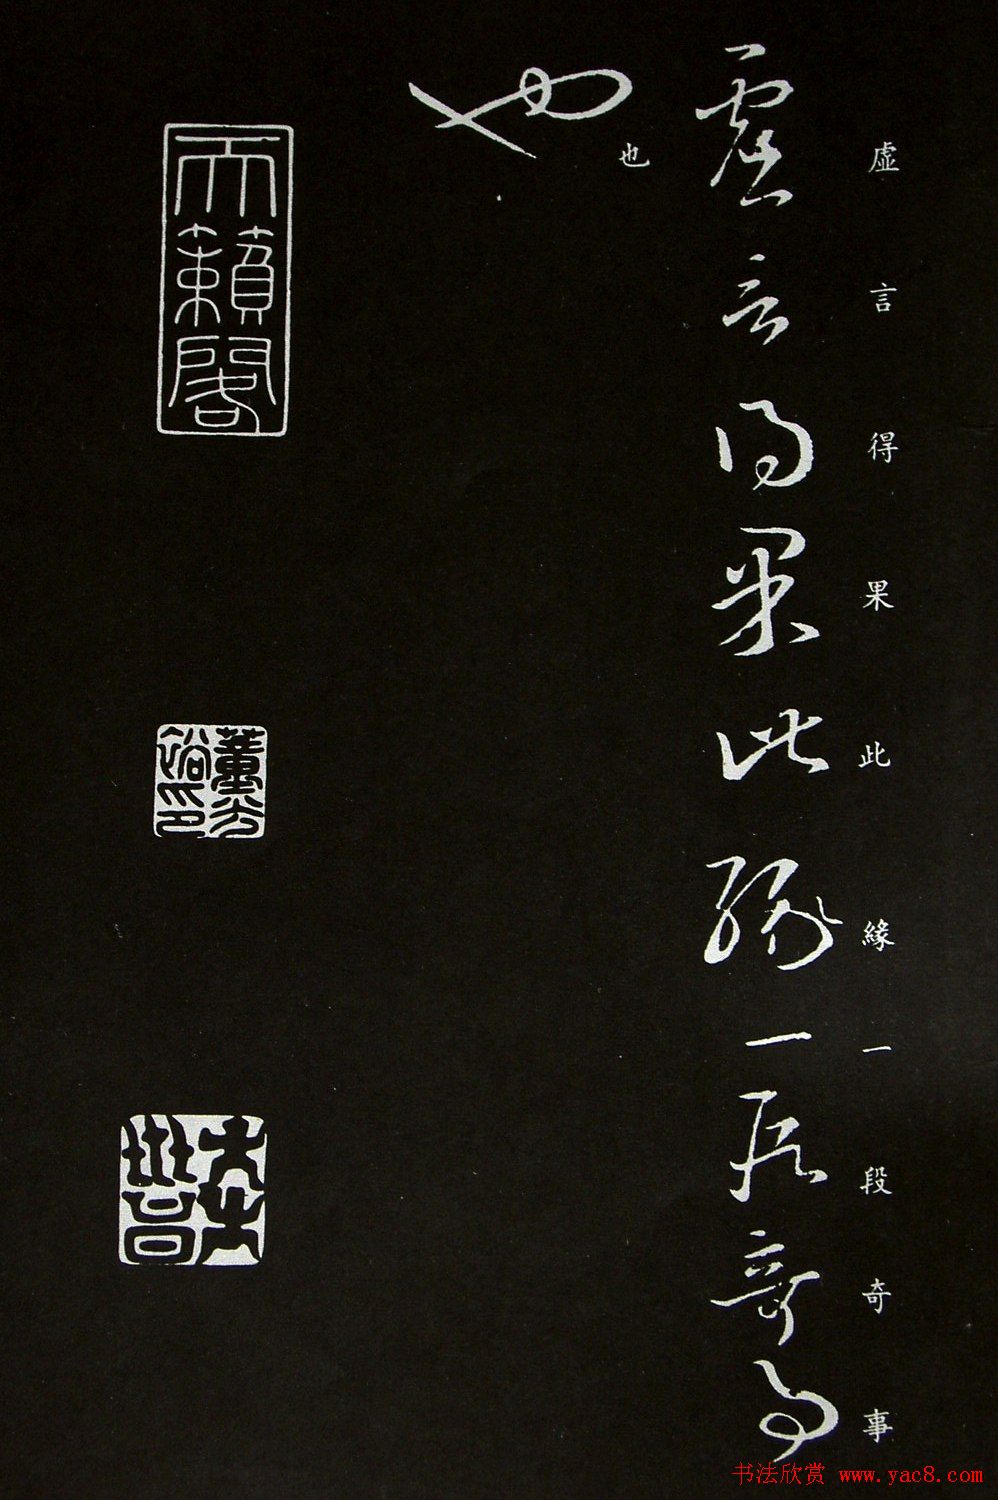 虛言得果此緣一段奇事
虛言得果此緣一段奇事
也
也
天籟閣
书法欣赏 www.yac8.com